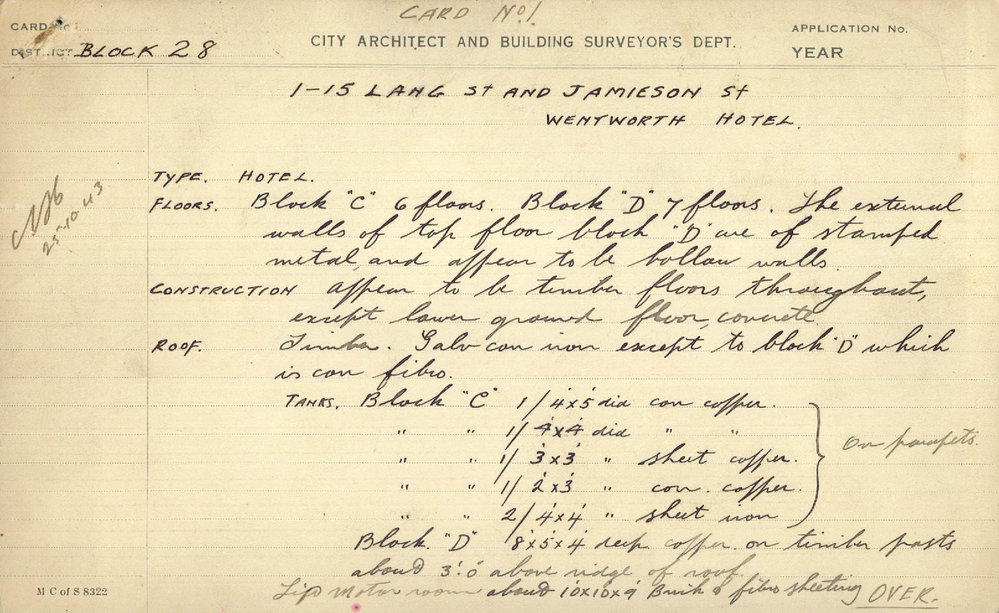 CARD No 1
CARD No.
DISTRICT BLOCK 28
CITY ARCHITECT AND BUILDING SURVEYOR'S DEPT.
APPLICATION No.
YEAR
1-15 LANG St AND JAMIESON St
WENTWORTH HOTEL.
25-10-43
TYPE. HOTEL.
FLOORS. Block "C" 6 floors. Block "D" 7 floors. The external
walls of top floor block "D" are of stamped
metal, and appear to be hollow walls.
CONSTRUCTION appear to be timber floors throughout,
except lower ground floor, concrete.
ROOF. Timber. Galv corr iron except to block "D" which
is corr fibro.
TANKS. Block "C" 1/4'x5' dia corr copper.
" " 1/4'x4' dia " "
" " 1/3'x3' " sheet copper.
" " 1/2'x3' " corr. copper.
" " 2/4'x4' " sheet iron
On parapets.
Block "D" 8'x5'x4' deep copper on timber posts
about 3'.0" above ridge of roof.
Lift motor room about 10'x10'x9' Brick & fibro sheeting OVER.
M C of S 8322